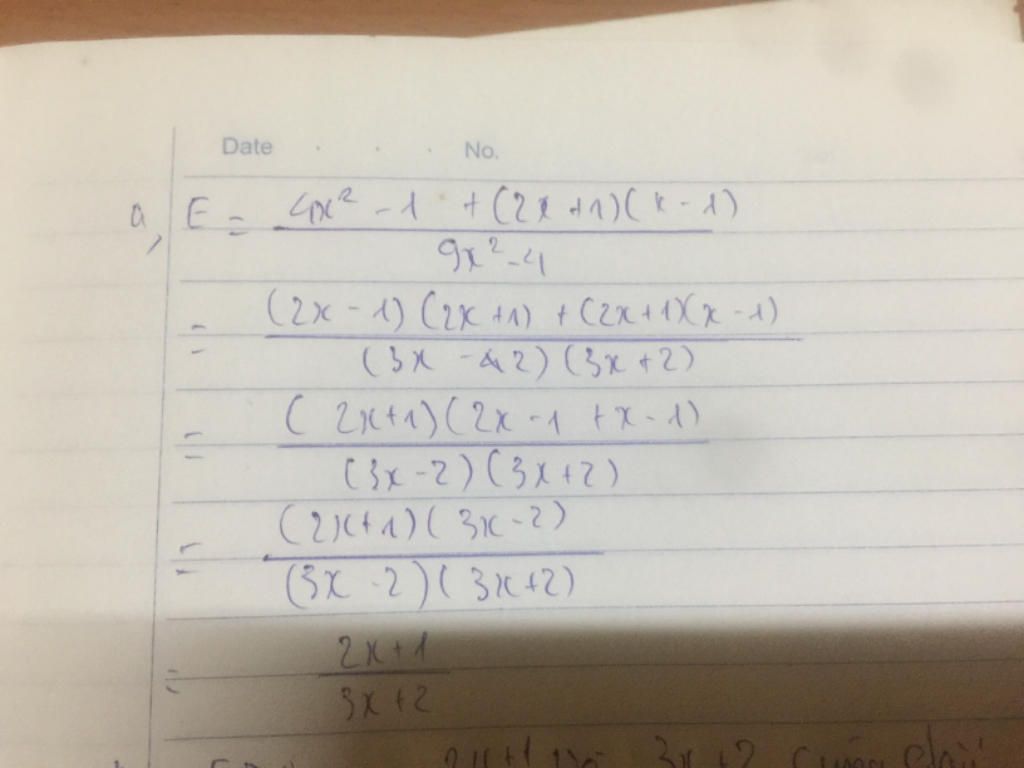 Date . . . No.
a, E = (4x² - 1 + (2x+1)(x-1)) / (9x² - 4)
= ((2x-1)(2x+1) + (2x+1)(x-1)) / ((3x-2)(3x+2))
= ((2x+1)(2x-1+x-1)) / ((3x-2)(3x+2))
= ((2x+1)(3x-2)) / ((3x-2)(3x+2))
= (2x+1) / (3x+2)
2x+1 3x+2